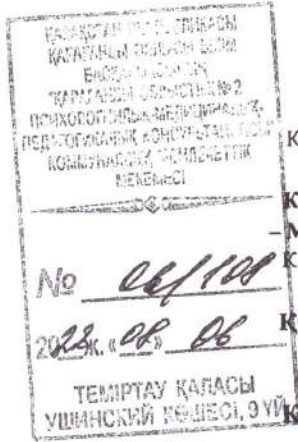 ҚАЗАҚСТАН РЕСПУБЛИКАСЫ
ҚАРАҒАНДЫ ОБЛЫСЫ БІЛІМ
"ҚАРАҒАНДЫ ОБЛЫСТЫҚ №2
ПСИХОЛОГИЯЛЫҚ-МЕДИЦИНАЛЫҚ-
ПЕДАГОГИКАЛЫҚ КОНСУЛЬТАЦИЯСЫ"
КОММУНАЛДЫҚ МЕМЛЕКЕТТІК
МЕКЕМЕСІ
№
2022ж. «08» 06
ТЕМІРТАУ ҚАЛАСЫ
УШИНСКИЙ КӨШЕСІ, 9 ҮЙ